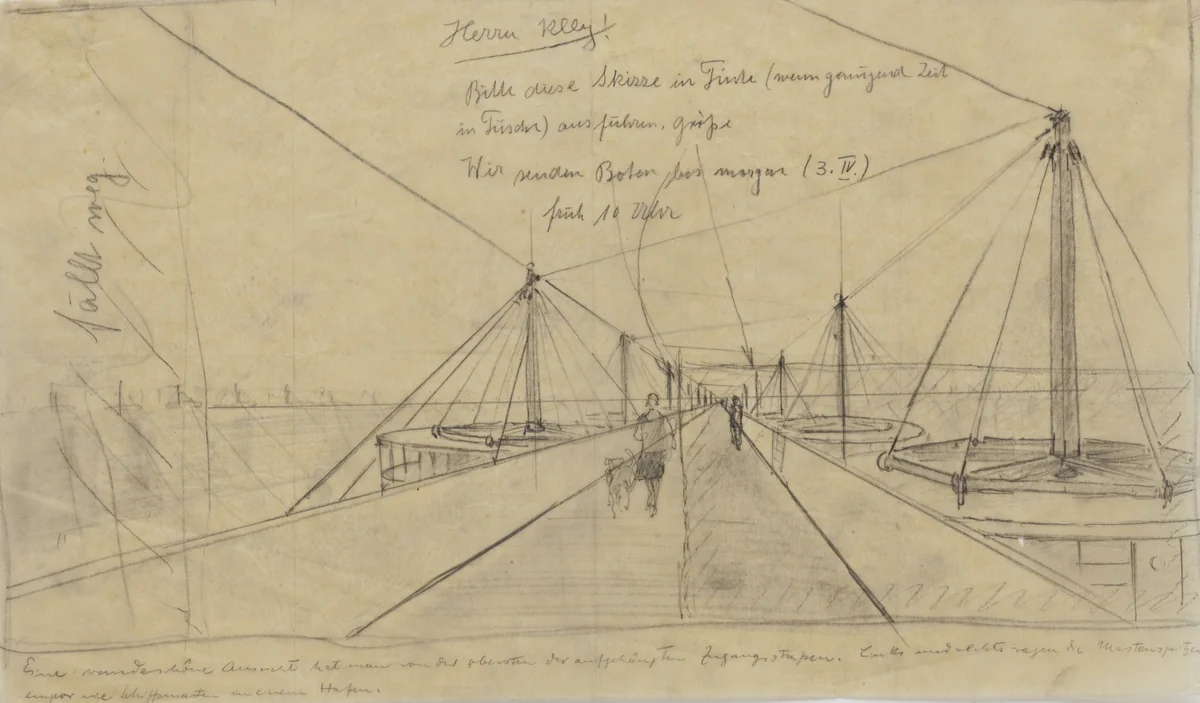 Herrn Kley!
Bitte diese Skizze in Tinte (wenn genügend Zeit
in Tusche) ausführen. Größe
Wir senden Boten bis morgen (3. IV.)
früh 10 Uhr
fällt weg.
Eine wunderschöne Aussicht hat man von der obersten der aufgehängten Zugangsstrassen. Links und rechts ragen die Mastenspitzen
empor wie Schiffsmasten in einem Hafen.